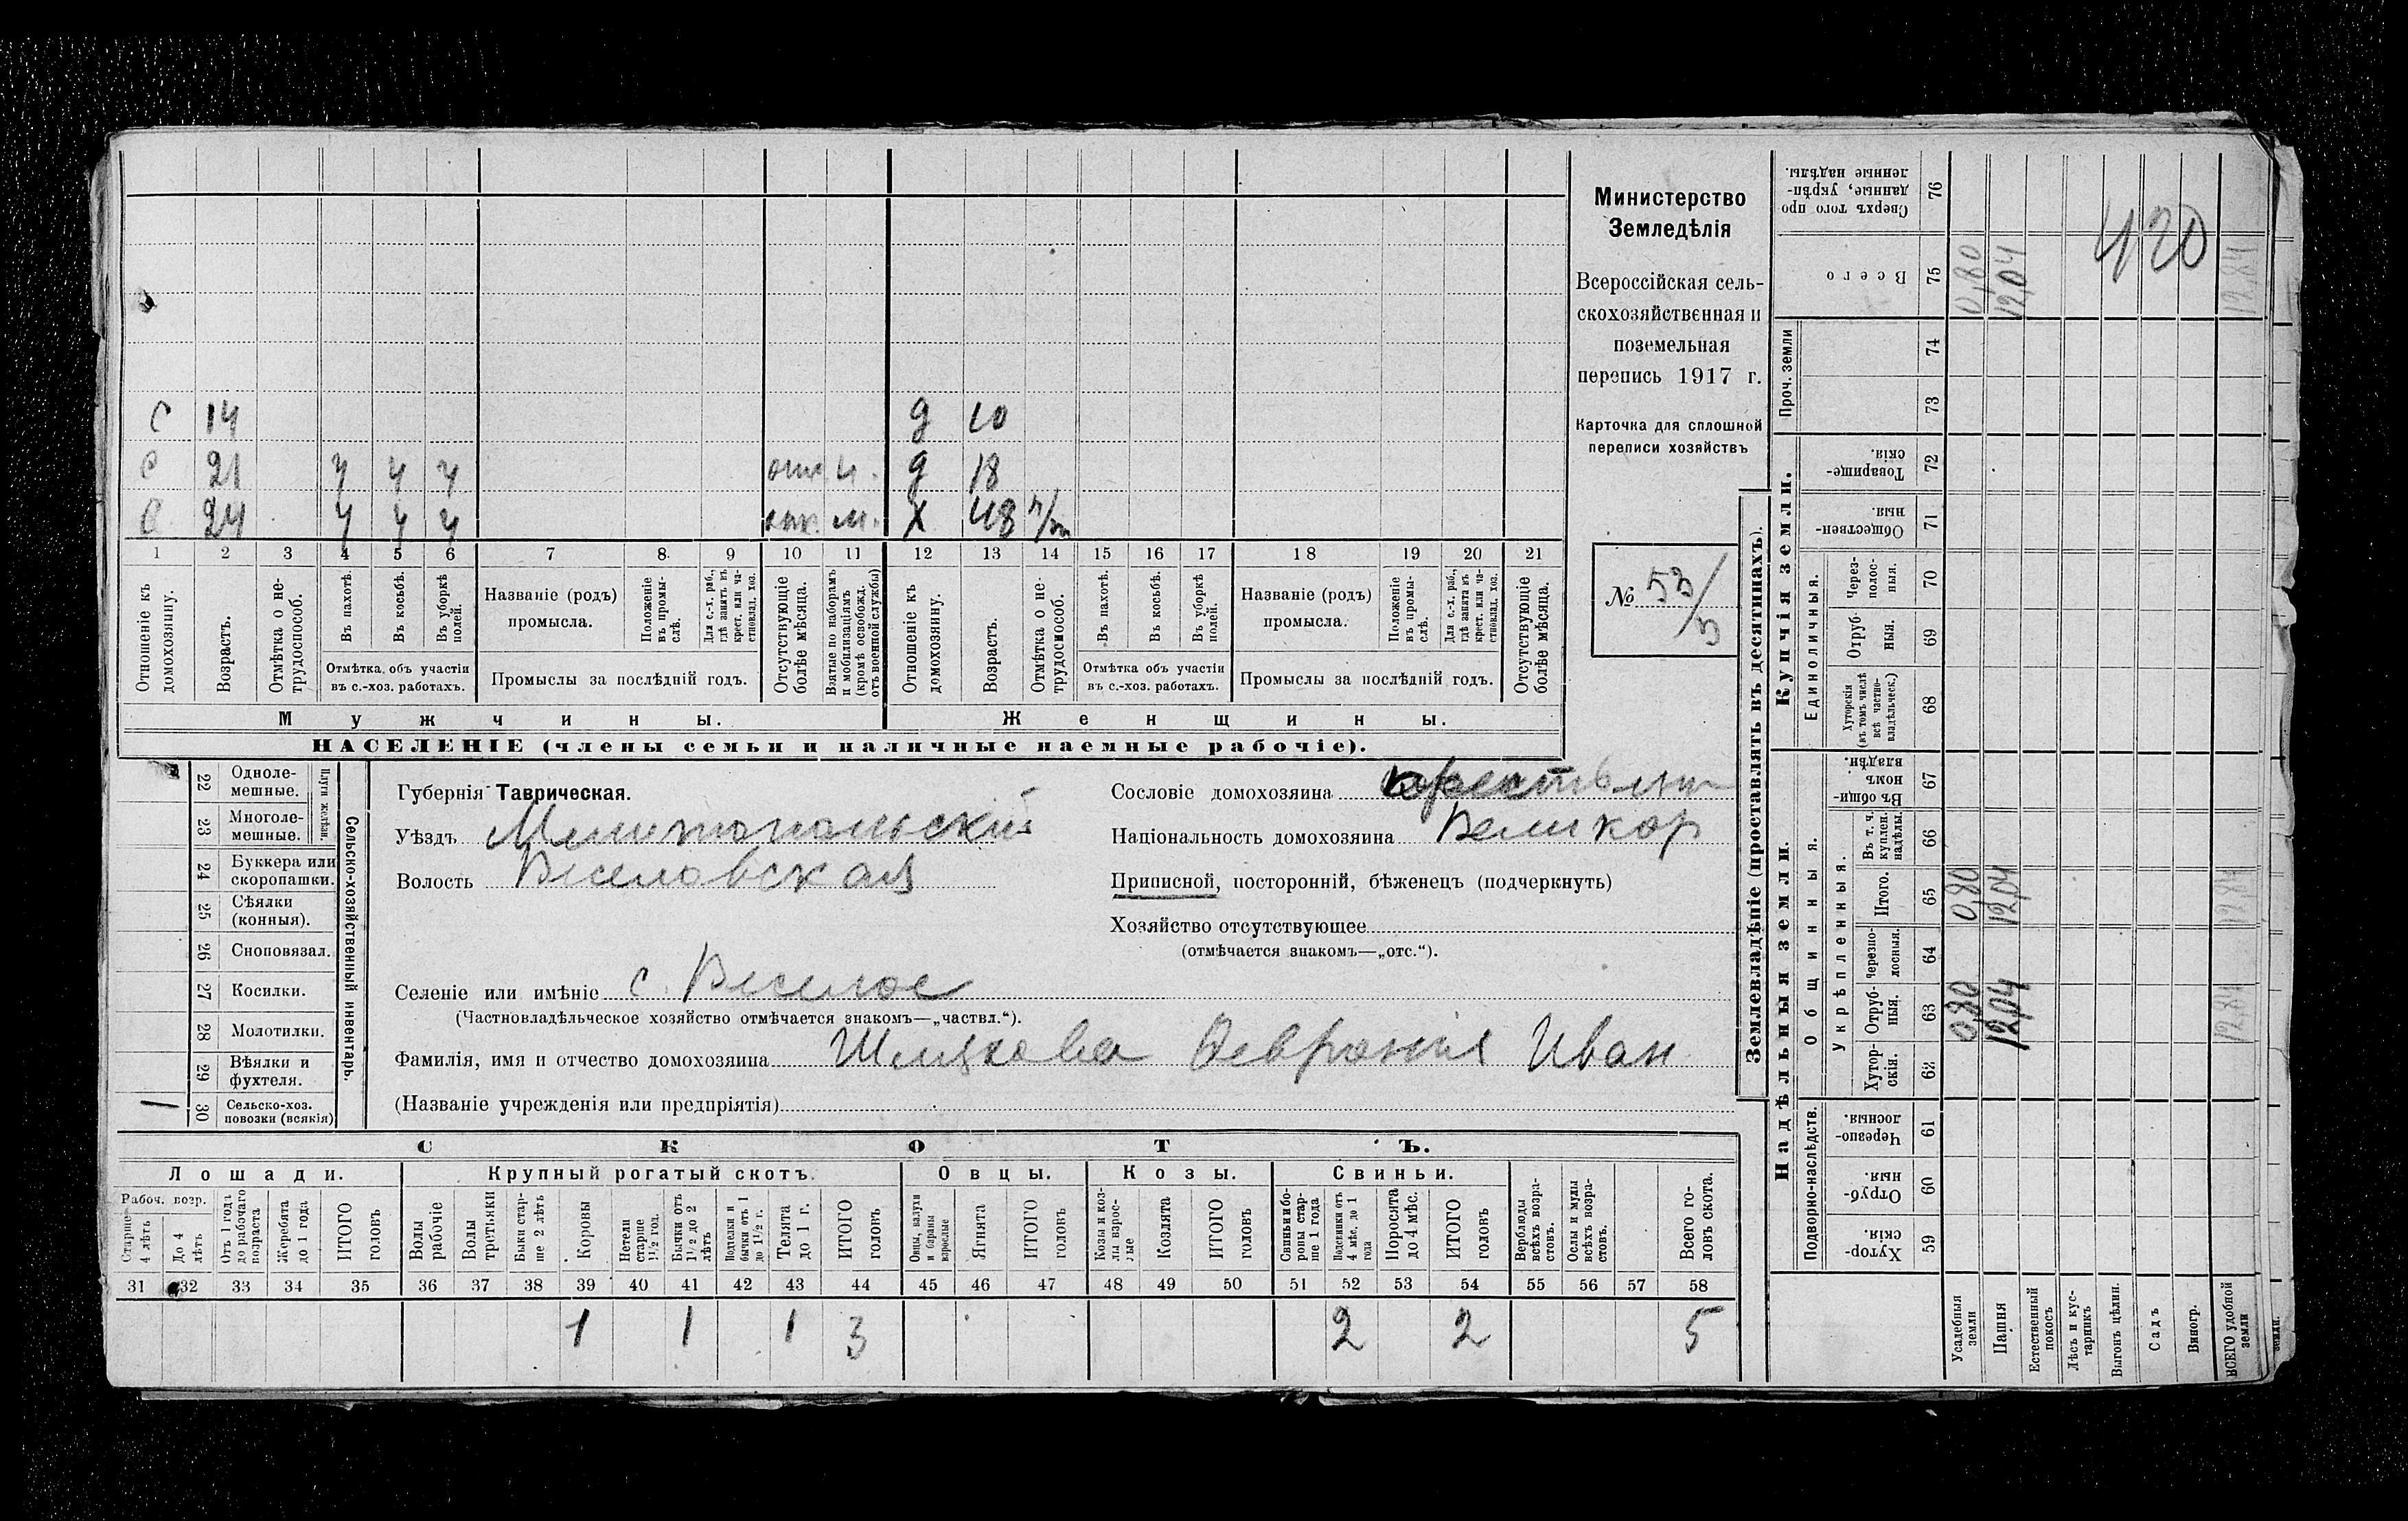 С 14 д 10
С 21 ч ч ч отк. м. д 18
С 24 ч ч ч отк. м. Х 48 п/т
1 2 3 4 5 6 7 8 9 10 11 12 13 14 15 16 17 18 19 20 21
Отношеніе къ домохозяину.
Возрастъ.
Отмѣтка о не-трудоспособ.
Въ пахотѣ.
Въ косьбѣ.
Въ уборкѣ полей.
Отмѣтка объ участіи
въ с.-хоз. работахъ.
Названіе (родъ)
промысла.
Положеніе въ промы-слѣ.
Для с.-х. раб., гдѣ занятъ въ крест. или ча-стновлад. хоз.
Промыслы за послѣдній годъ.
Отсутствующіе болѣе мѣсяца.
Взятые по наборамъ и мобилизаціямъ (кромѣ освобожд. отъ военной службы)
Отношеніе къ домохозяину.
Возрастъ.
Отмѣтка о не-трудоспособ.
Въ пахотѣ.
Въ косьбѣ.
Въ уборкѣ полей.
Отмѣтка объ участіи
въ с.-хоз. работахъ.
Названіе (родъ)
промысла.
Положеніе въ промы-слѣ.
Для с.-х. раб., гдѣ занята въ крест. или ча-стновлад. хоз.
Промыслы за послѣдній годъ.
Отсутствующіе болѣе мѣсяца.
Мужчины. Женщины.
НАСЕЛЕНІЕ (члены семьи и наличные наемные рабочіе).
Министерство
Земледѣлія
Всероссійская сель-
скохозяйственная и
поземельная
перепись 1917 г.
Карточка для сплошной
переписи хозяйствъ
№ 53/5
22 Одноле-мешные.
23 Многоле-мешные.
Плуги желѣзн.
24 Буккера или скоропашки.
25 Сѣялки (конныя).
26 Сноповязал.
27 Косилки.
28 Молотилки.
29 Вѣялки и фухтеля.
1 30 Сельско-хоз. повозки (всякія)
Сельско-хозяйственный инвентарь.
Губернія Таврическая.
Уѣздъ Мелитопольскій
Волость Веселовская
Сословіе домохозяина
Національность домохозяина Великор
Приписной, посторонній, бѣженецъ (подчеркнуть)
Хозяйство отсутствующее
(отмѣчается знакомъ—„отс.“).
Селеніе или имѣніе с. Веселое
(Частновладѣльческое хозяйство отмѣчается знакомъ—„частвл.“).
Фамилія, имя и отчество домохозяина Шляхова Февронія Иван
(Названіе учрежденія или предпріятія)
СКОТЪ.
Лошади. Крупный рогатый скотъ. Овцы. Козы. Свиньи.
Рабоч. возр.
Старше 4 лѣтъ
До 4 лѣтъ
Отъ 1 года до рабочаго возраста
Жеребята до 1 года
ИТОГО головъ
Волы рабочіе
Волы третьяки
Быки стар-ше 2 лѣтъ
Коровы
Нетели старше 1½ год.
Бычки отъ 1½ до 2 лѣтъ
Нетелки и бычки отъ 1 до 1½ г.
Телята до 1 г.
ИТОГО головъ
Овцы, валухи и бараны взрослые
Ягнята
ИТОГО головъ
Козы и коз-лы взрос-лые
Козлята
ИТОГО головъ
Свиньи и бо-ровы стар-ше 1 года
Подсвинки отъ 4 мѣс. до 1 года
Поросята до 4 мѣс.
ИТОГО головъ
Верблюды всѣхъ возра-стовъ.
Ослы и мулы всѣхъ возра-стовъ.
Всего го-ловъ скота.
31 32 33 34 35 36 37 38 39 40 41 42 43 44 45 46 47 48 49 50 51 52 53 54 55 56 57 58
1 1 1 3 2 2 5
Землевладѣніе (проставлять въ десятинахъ).
Надѣльныя земли. Купчія земли. Проч. земли
Подворно-наслѣдств.
Общинныя.
Укрѣпленныя.
Единоличныя.
Хутор-скія. 59
Отруб-ныя. 60
Черезпо-лосныя. 61
Хутор-скія. 62
Отруб-ныя. 63 0,80 12,04 12,84
Черезпо-лосныя. 64
Итого. 65 0,80 12,04 12,84
Въ т. ч. куплен. надѣлы. 66
Въ общин-номъ владѣн. 67
Хуторскія (въ томъ числѣ всѣ частно-владѣльческ.) 68
Отруб-ныя. 69
Через-полос-ныя. 70
Обществен-ныя. 71
Товарище-скія. 72
73
74
Всего 75 0,80 12,04 12,84
Сверхъ того про-данные, укрѣп-ленные надѣлы. 76
420
Усадебныя земли
Пашня
Естественный покосъ
Лѣсъ и кус-тарникъ
Выгонъ цѣлин.
Садъ
Виногр.
ВСЕГО удобной земли